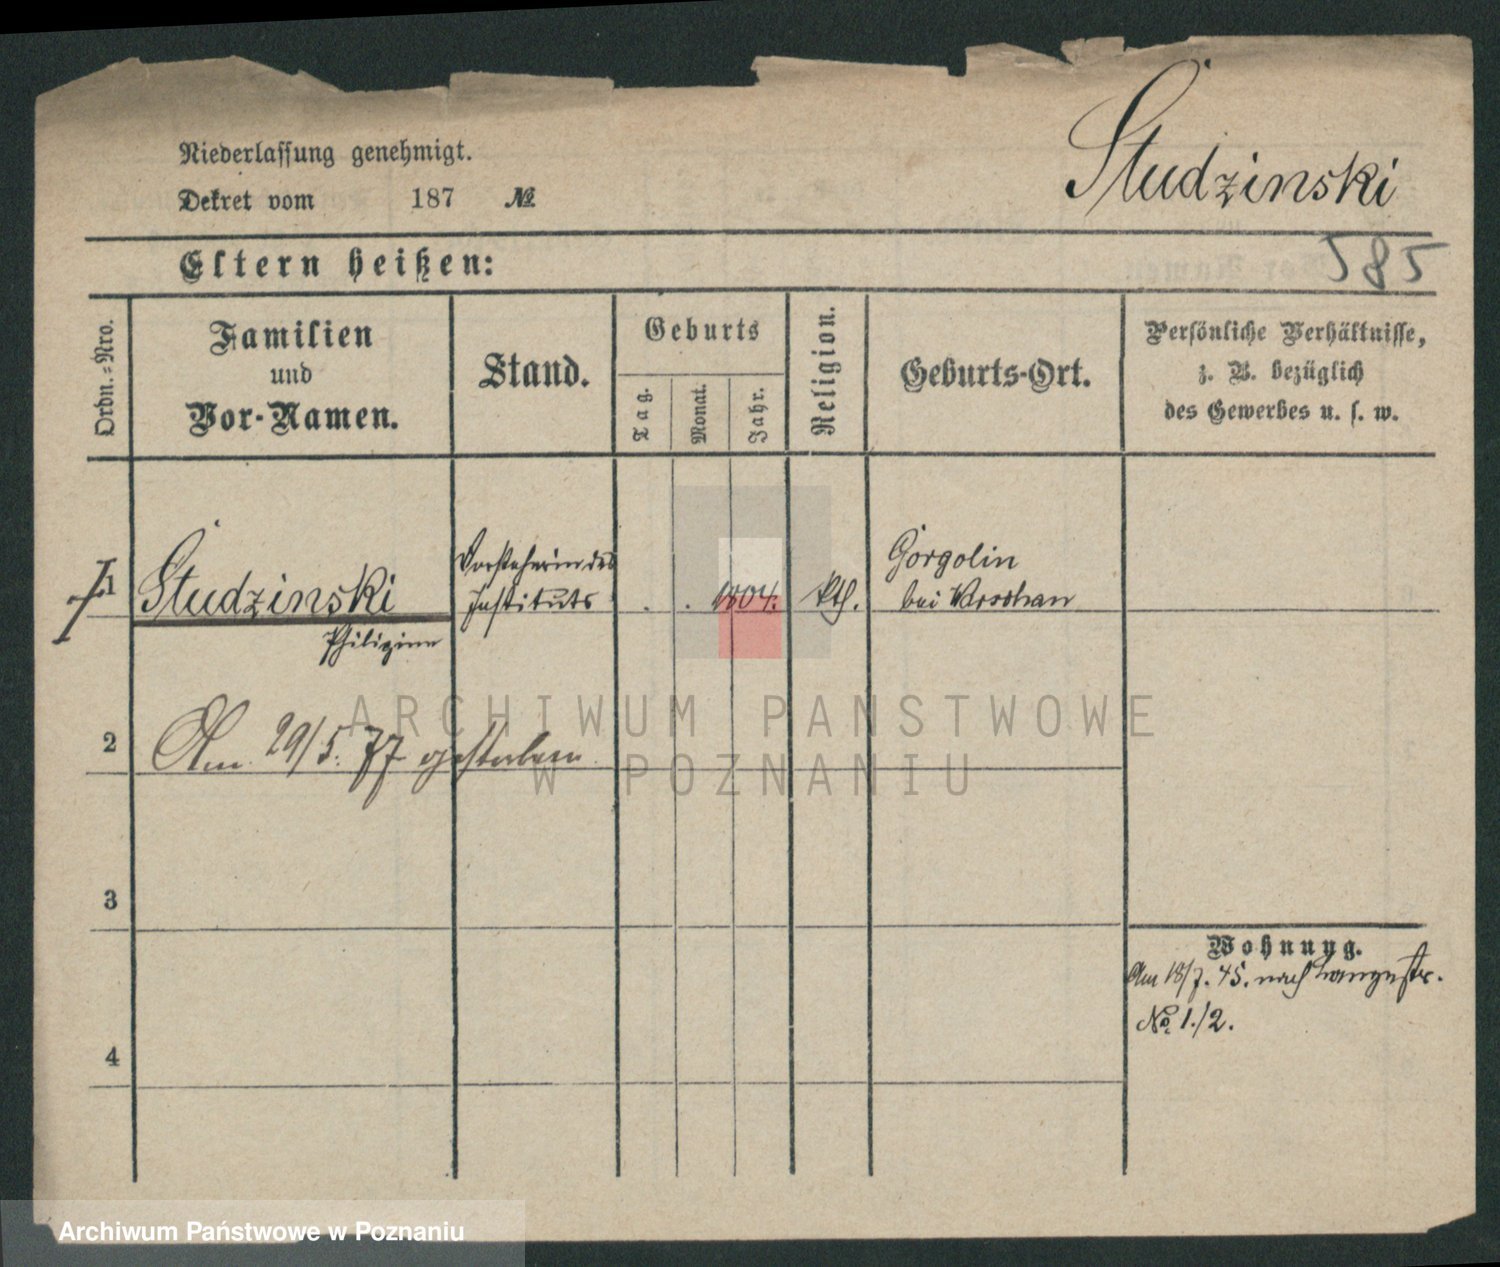 Niederlassung genehmigt.
Dekret vom 187 №
Studzinski
585
Eltern heißen:
Ordn.-Nro.
Familien
und
Vor-Namen.
Stand.
Geburts
Tag.
Monat.
Jahr.
Religion.
Geburts-Ort.
Persönliche Verhältnisse,
z. B. bezüglich
des Gewerbes u. s. w.
1
Studzinski
Philipine
Vorsteherin des
Instituts
1804.
kth.
Gorgolin
bei
2
Am 29/5. 77 gestorben
ARCHIWUM PAŃSTWOWE
W POZNANIU
3
Wohnung.
Am 18/7. 45. nach Langestr.
No. 1./2.
4
Archiwum Państwowe w Poznaniu